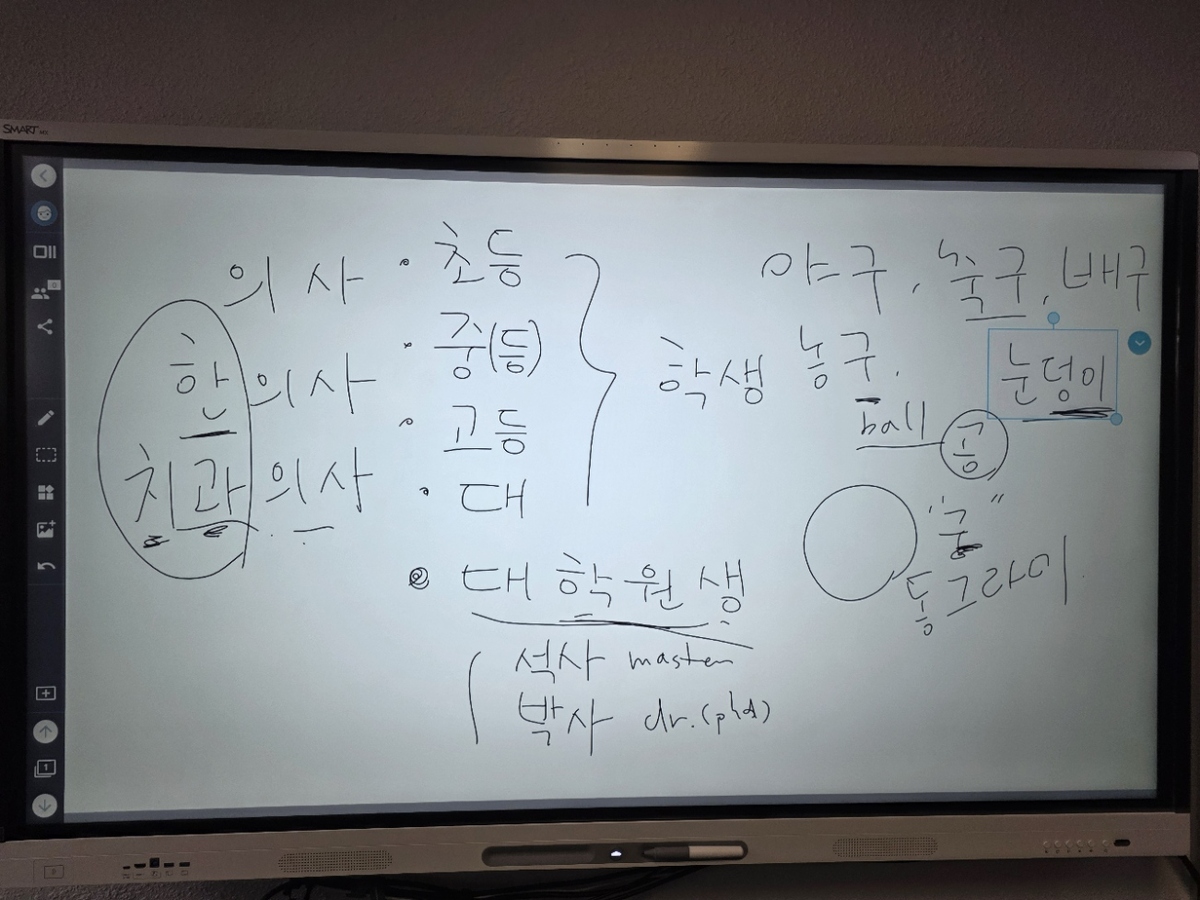 SMART MX
의사
한의사
치과의사
· 초등
· 중(등)
· 고등
· 대
학생
대학원생
석사 master
박사 dr. (phd)
야구, 축구, 배구
농구,
눈덩이
ball 공
"궁"
동그라미